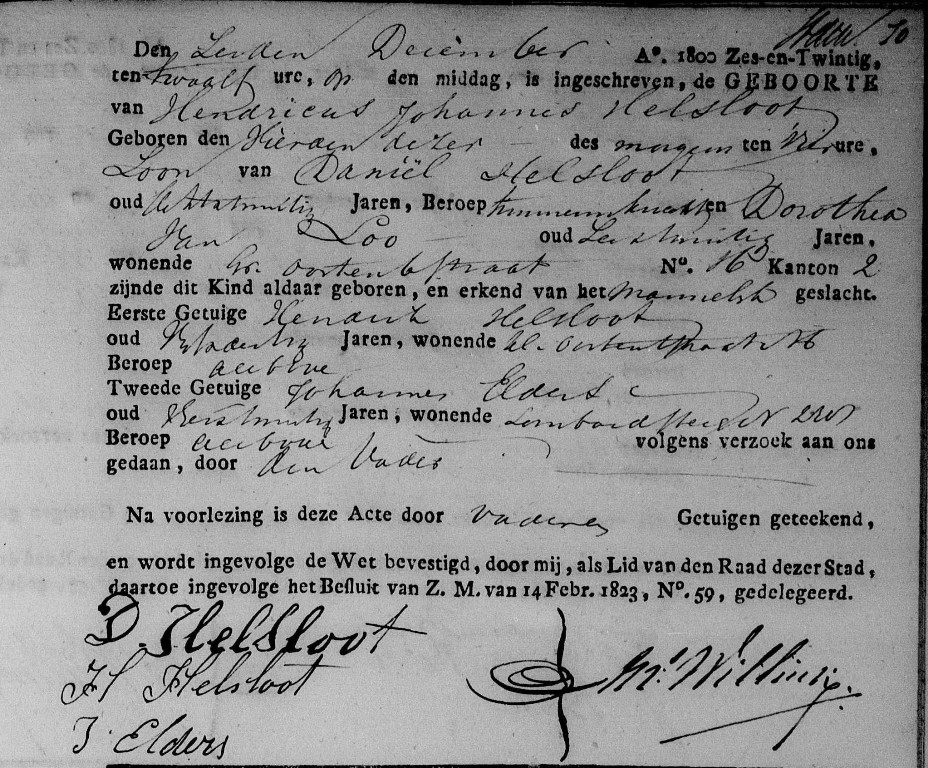 50
Den Zesden December Aº. 1800 Zes-en-Twintig,
ten twaalf ure, op den middag, is ingeschreven, de GEBOORTE
van Hendricus Johannes Helsloot
Geboren den Vierden dezer des morgens ten Vier ure,
Zoon van Daniël Helsloot
oud Jaren, Beroep timmermansknecht en Dorothea
Van Loo oud Jaren,
wonende Gr. Oostenbstraat Nº. 16 Kanton 2
zijnde dit Kind aldaar geboren, en erkend van het Mannelijk geslacht.
Eerste Getuige Hendrik Helsloot
oud Jaren, wonende
Beroep
Tweede Getuige Johannes Elders
oud Jaren, wonende Lombardsteeg N
Beroep volgens verzoek aan ons
gedaan, door den Vader
Na voorlezing is deze Acte door Vader en Getuigen geteekend,
en wordt ingevolge de Wet bevestigd, door mij, als Lid van den Raad dezer Stad,
daartoe ingevolge het Besluit van Z. M. van 14 Febr. 1823, Nº. 59, gedelegeerd.
D. Helsloot
H Helsloot
J Elders
Mr. Willink